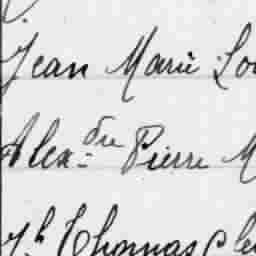 Jean Marie Lou
Alex.dre Pierre M
Jh Thomas Cle